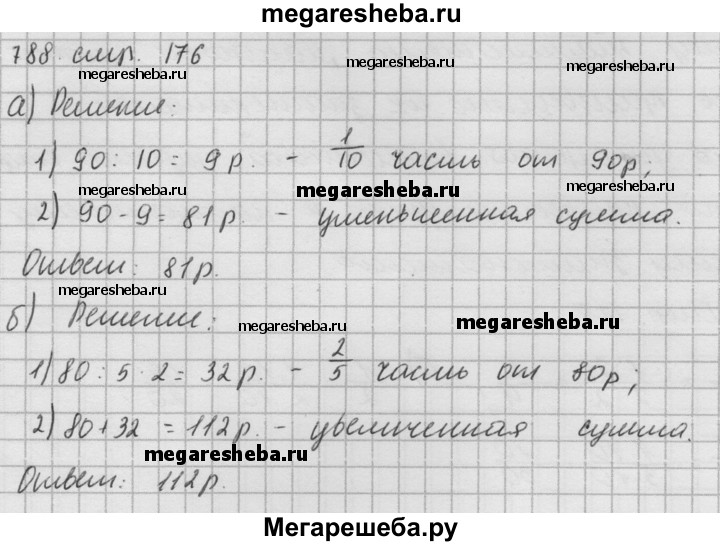 megaresheba.ru
788 стр. 176
megaresheba.ru megaresheba.ru megaresheba.ru
а) Решение:
1) 90 : 10 = 9 р. - 1/10 часть от 90р;
megaresheba.ru megaresheba.ru megaresheba.ru
2) 90 - 9 = 81 р. - уменьшенная сумма.
Ответ: 81 р.
megaresheba.ru megaresheba.ru megaresheba.ru
б) Решение:
1) 80 : 5 · 2 = 32 р. - 2/5 часть от 80р;
2) 80 + 32 = 112 р. - увеличенная сумма.
megaresheba.ru megaresheba.ru
Ответ: 112 р.
Мегарешеба.ру